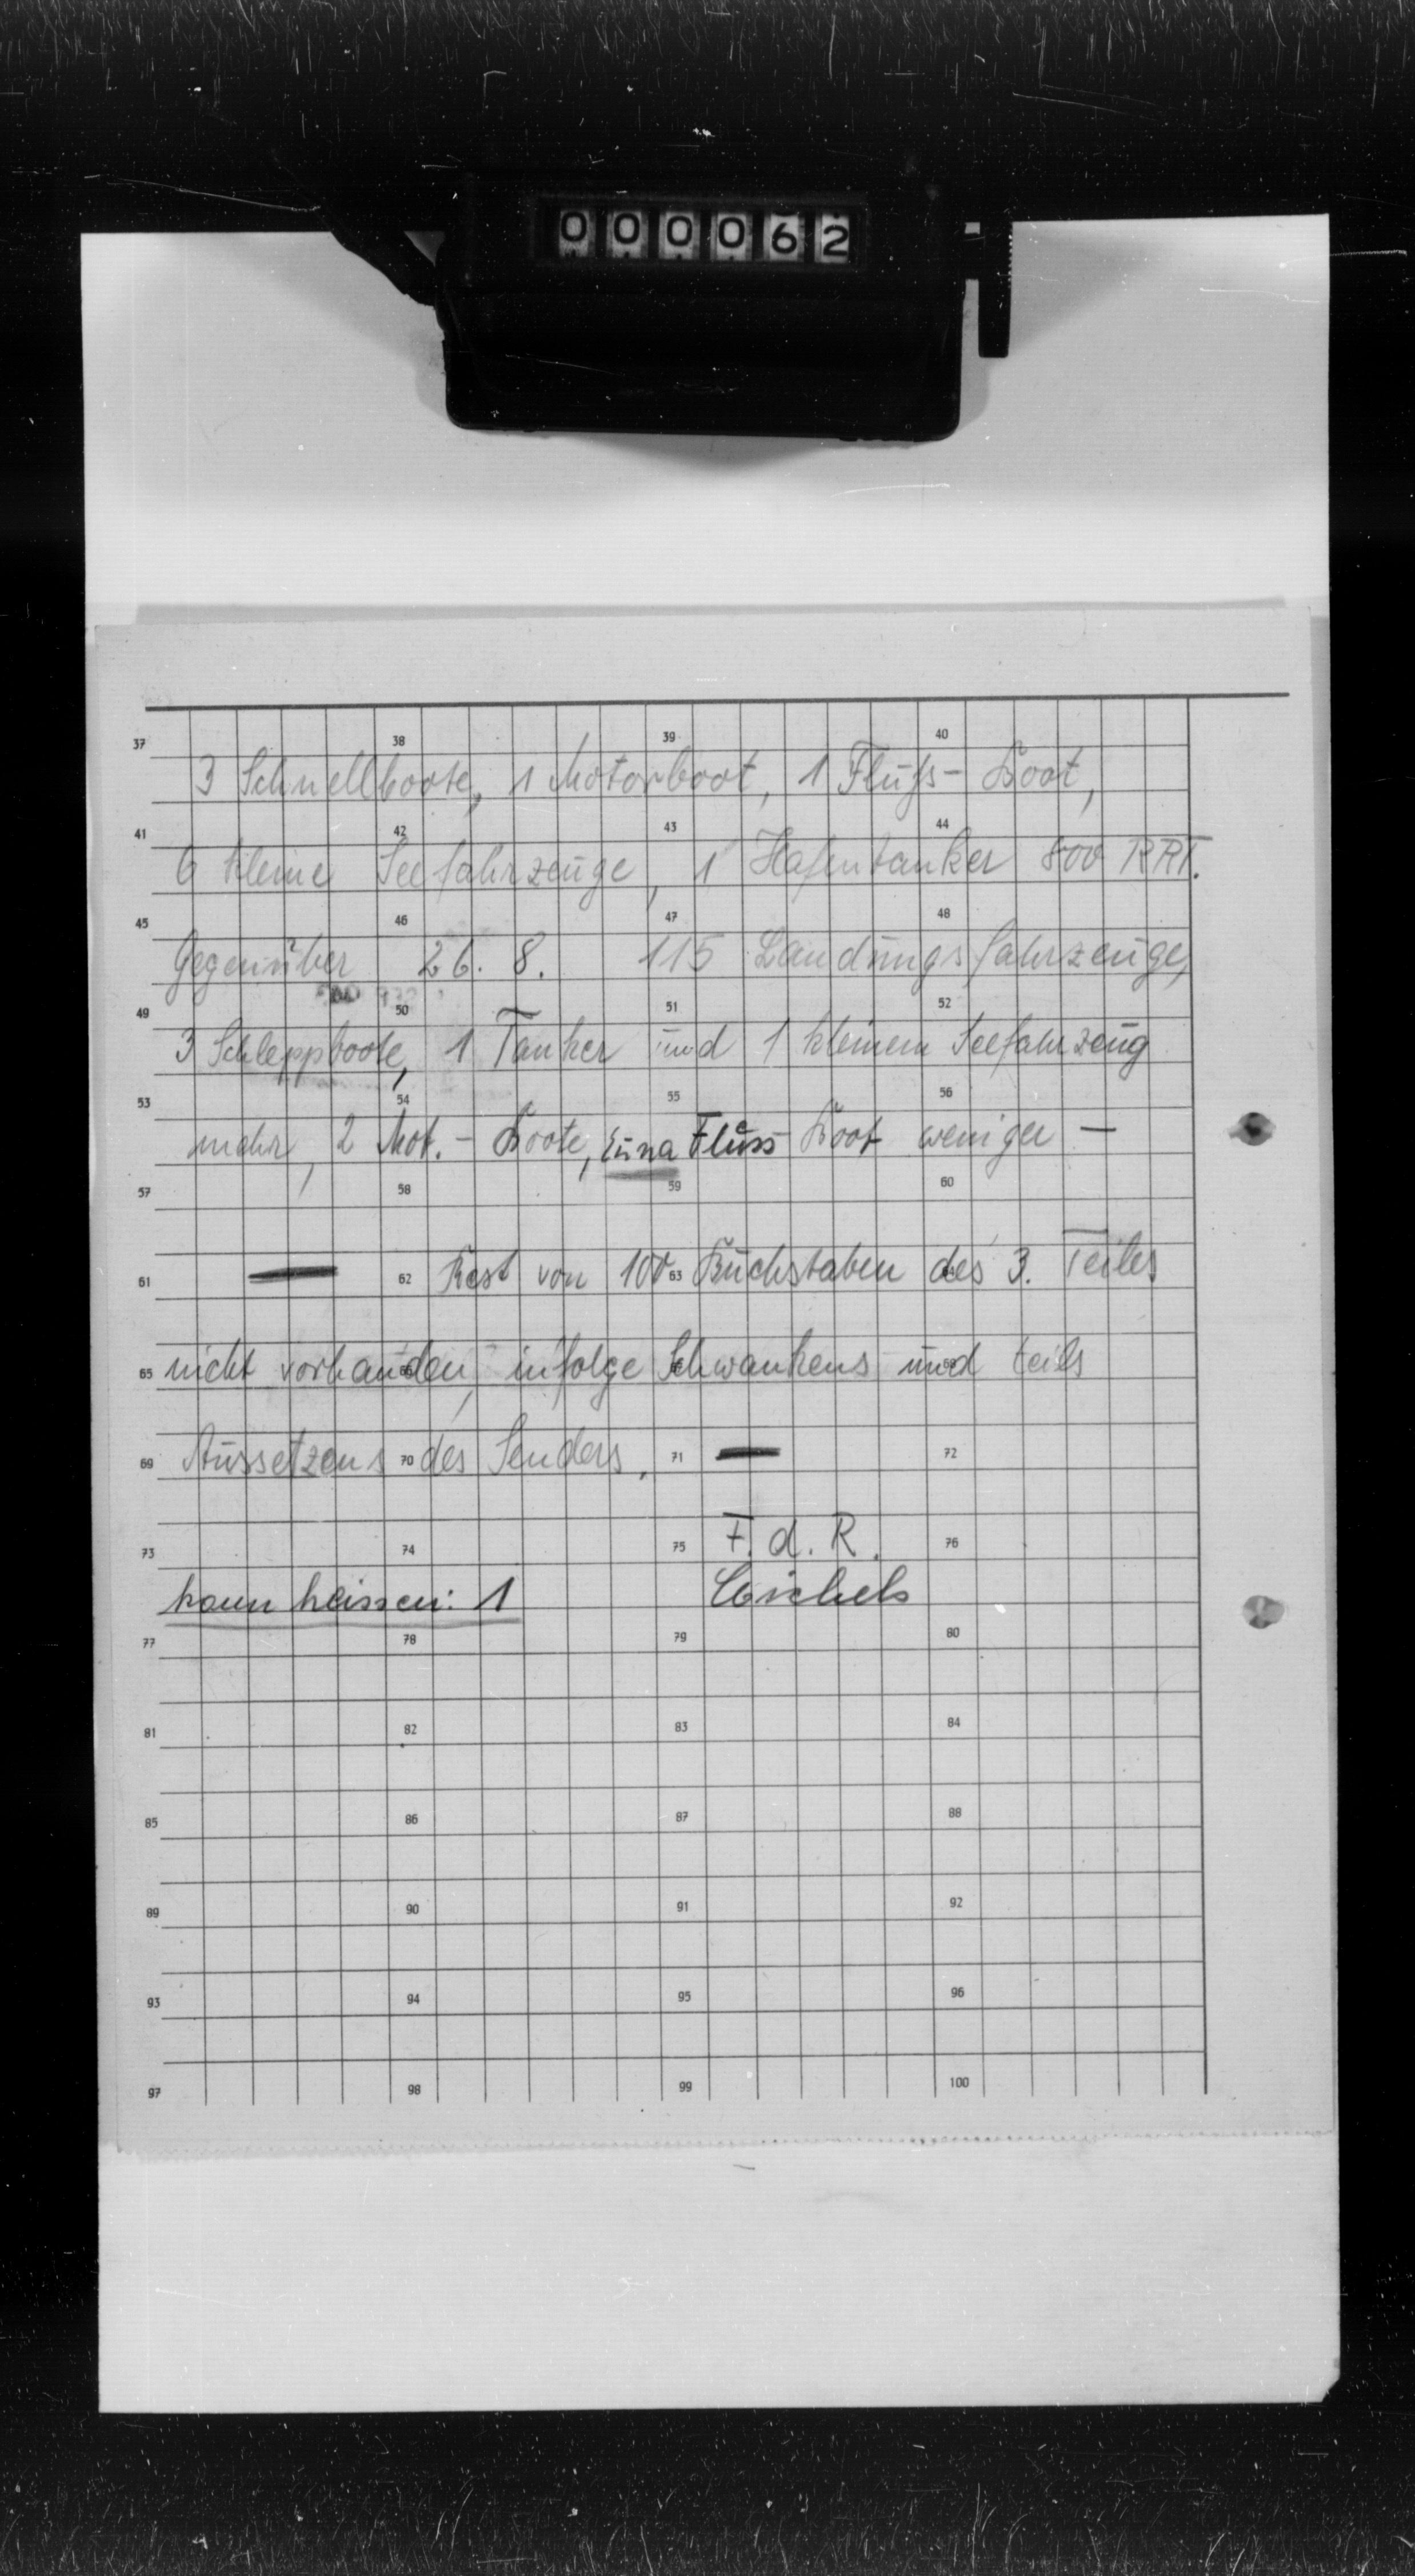 000062
37 38 39 40
3 Schnellboote, 1 Motorboot, 1 Fluss- Boot,
41 42 43 44
6 kleine Seefahrzeuge, 1 Hafentanker 800 BRT.
45 46 47 48
Gegenüber 26. 8. 115 Landungsfahrzeuge,
49 50 51 52
3 Schleppboote, 1 Tanker und 1 kleinem Seefahrzeug
53 54 55 56
mehr, 2 Mot.- Boote, Fluss- Boot weniger —
57 58 59 60
61 — 62 Rest von 100 63 Buchstaben des 3. Teiles
65 nicht vorhanden, infolge Schwankens und teils
69 Aussetzens 70 des Senders. 71 — 72
73 74 75 F. d. R. 76
kann heissen: 1
77 78 79 80
81 82 83 84
85 86 87 88
89 90 91 92
93 94 95 96
97 98 99 100